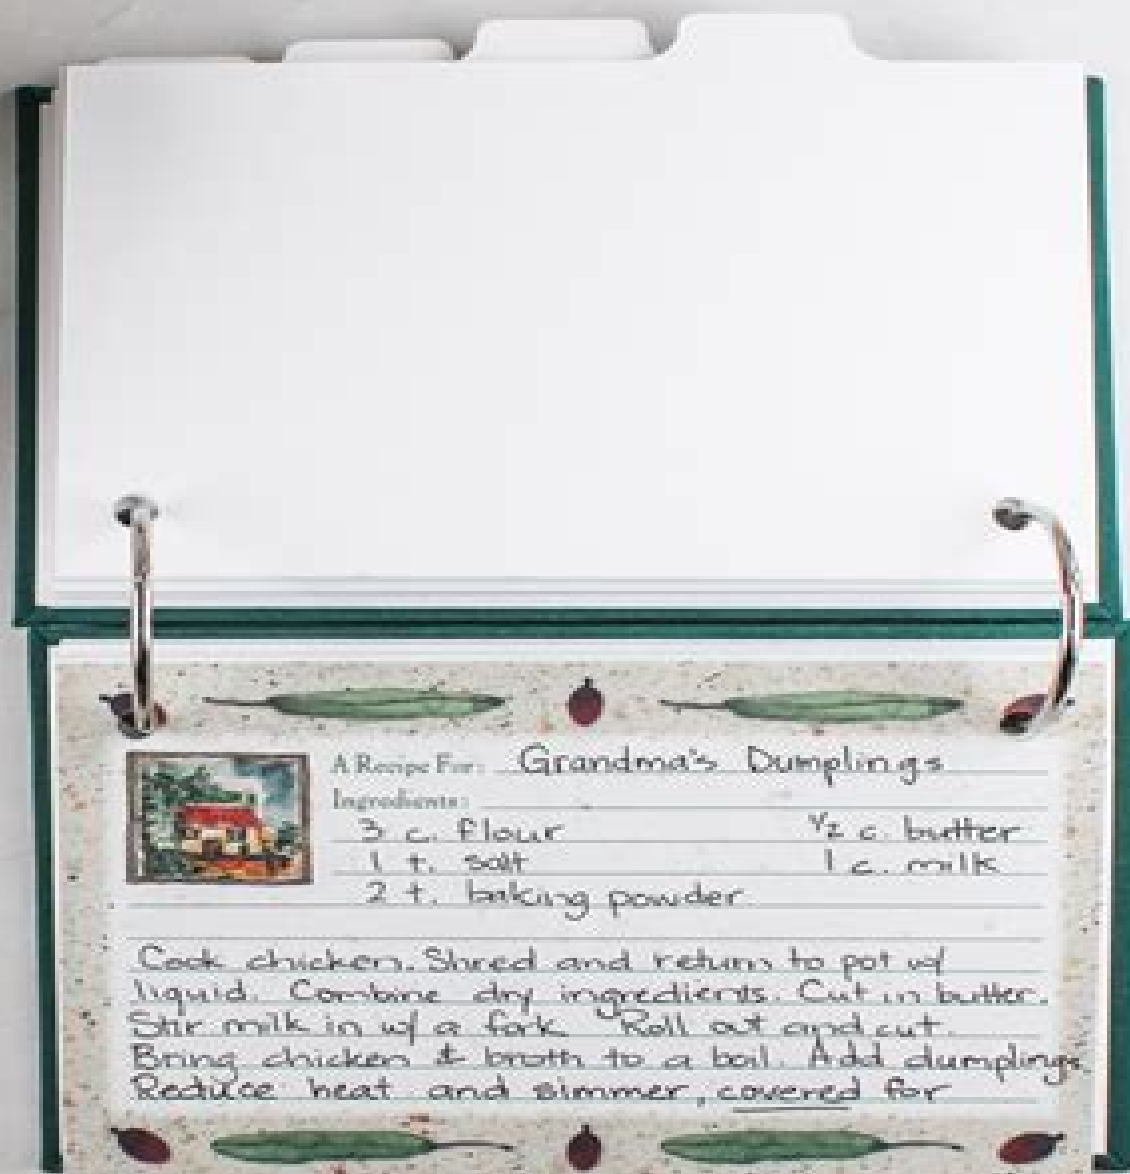 A Recipe For: Grandma's Dumplings
Ingredients:
3 c. flour ½ c. butter
1 t. salt 1 c. milk
2 t. baking powder
Cook chicken. Shred and return to pot w/
liquid. Combine dry ingredients. Cut in butter.
Stir milk in w/ a fork. Roll out and cut.
Bring chicken & broth to a boil. Add dumplings.
Reduce heat and simmer, covered for